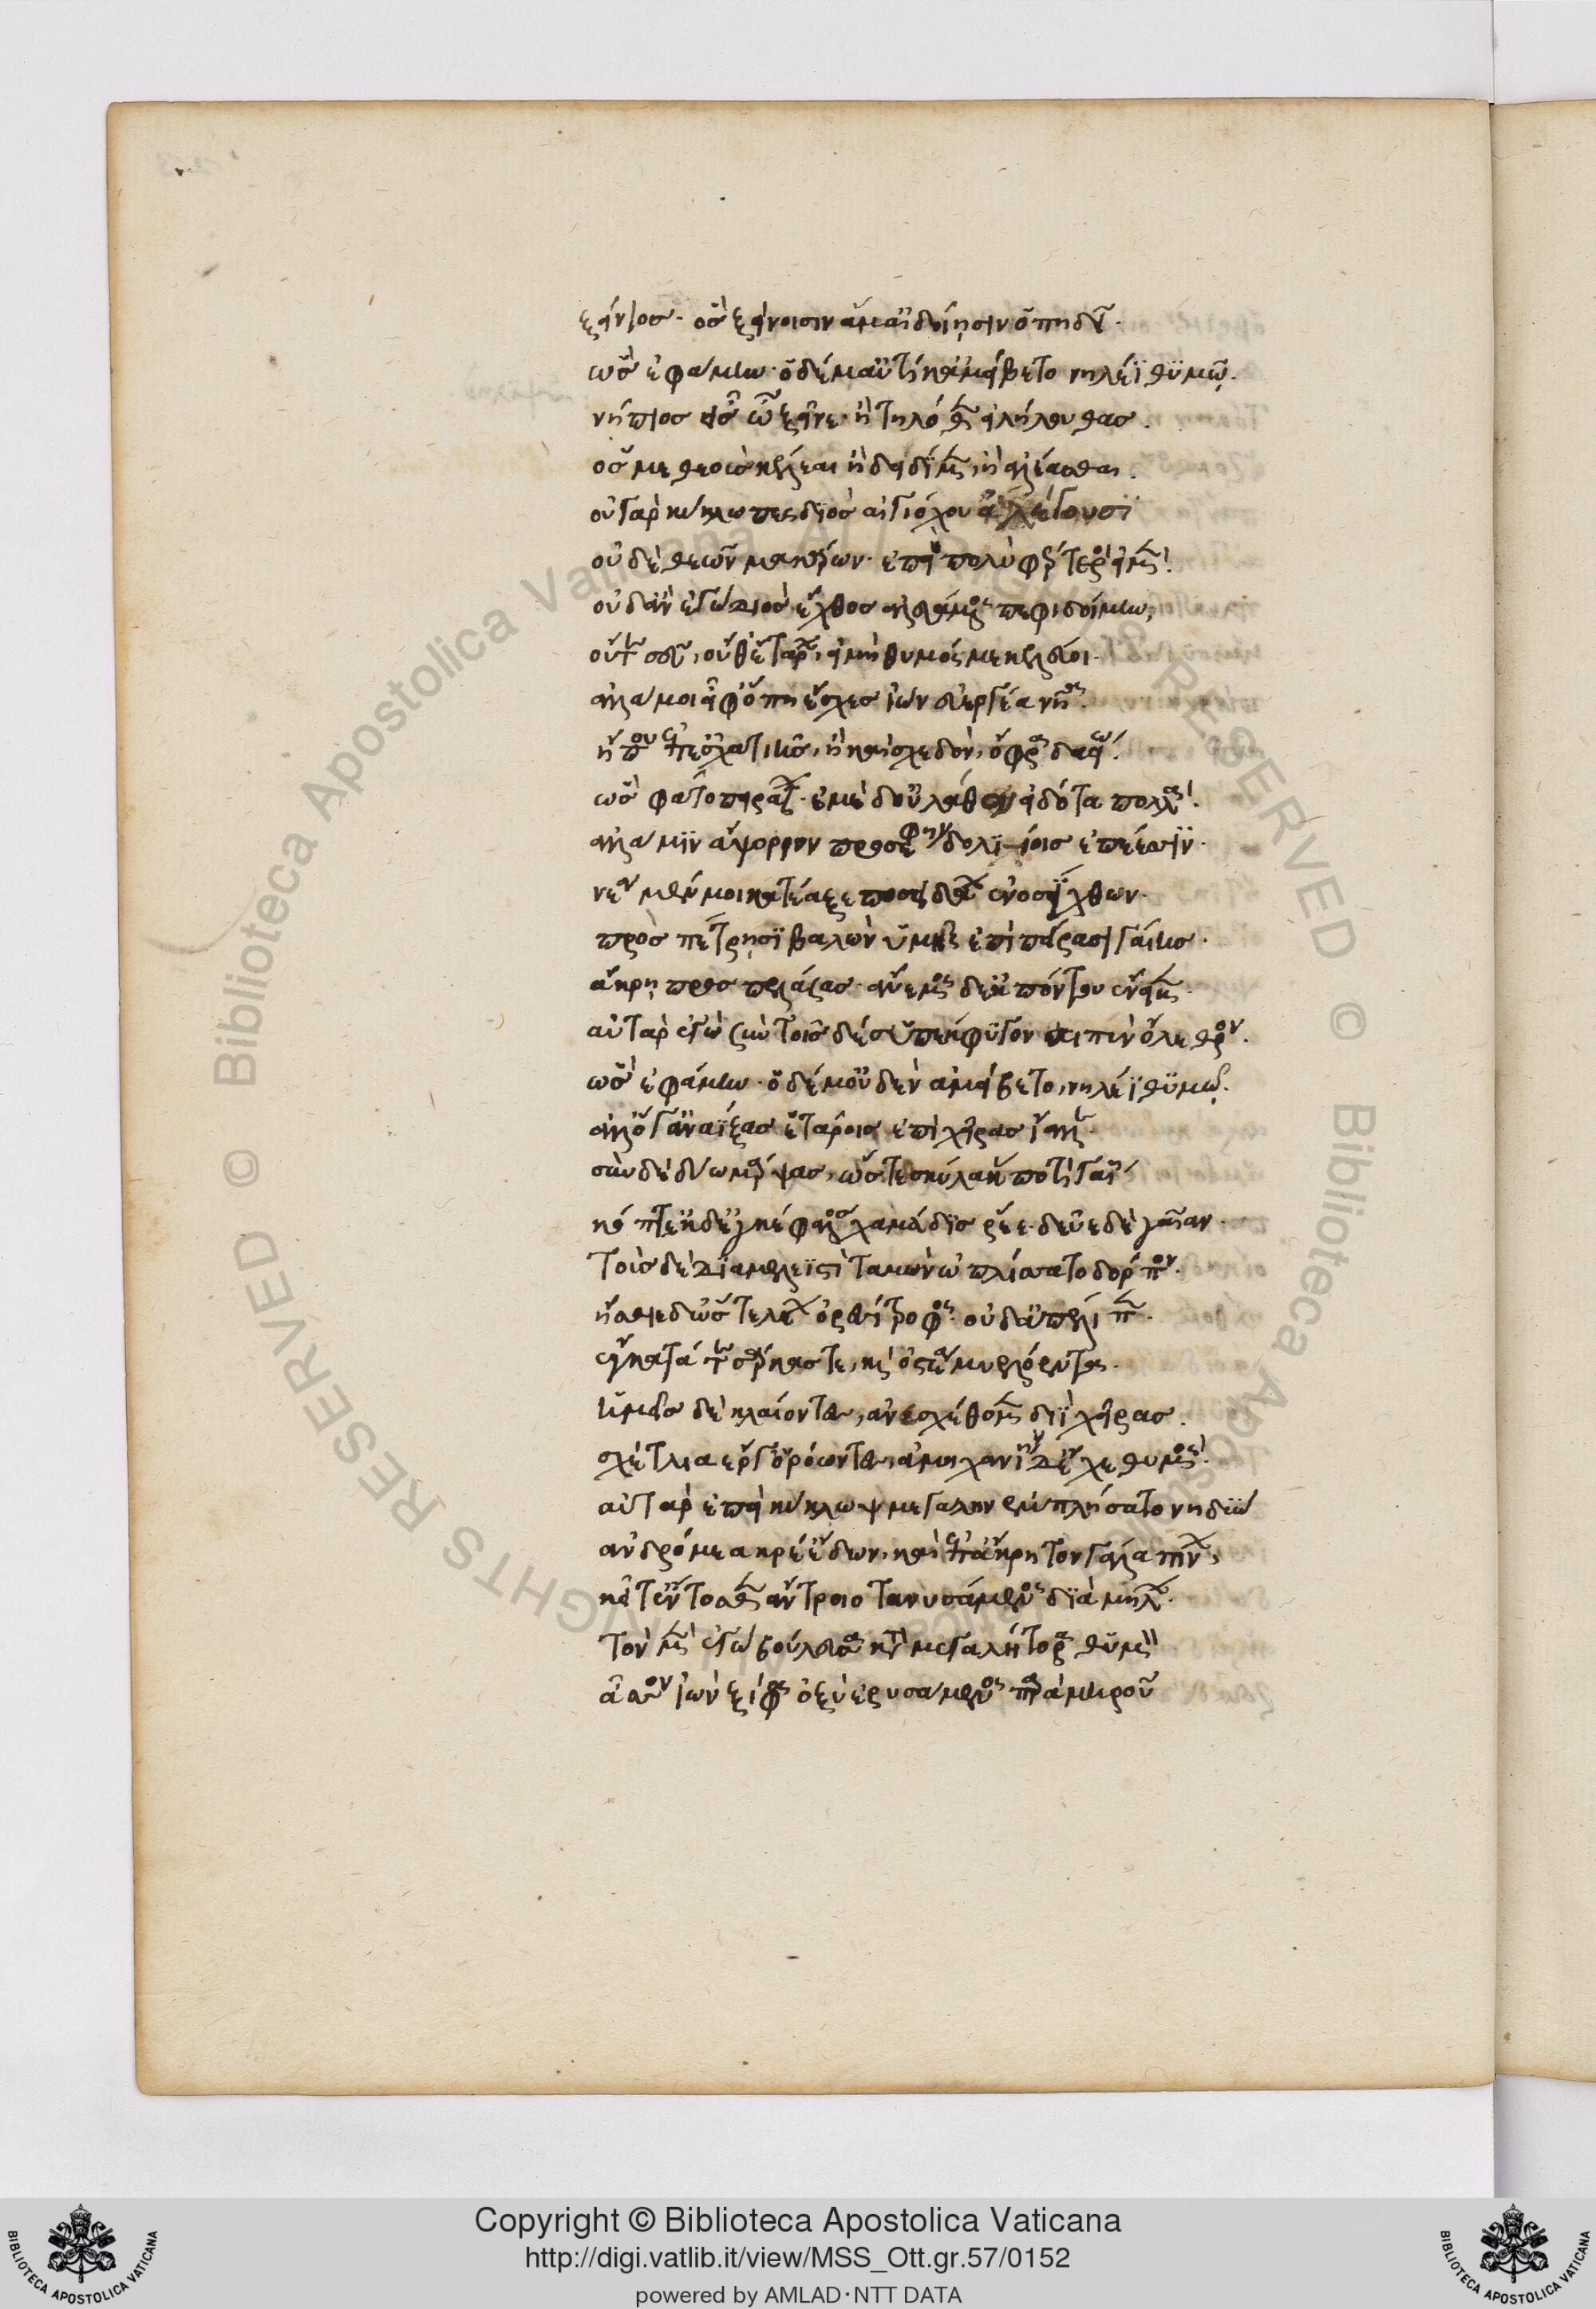 ξείνιος· ὃς ξείνοισιν ἅμ' αἰδοίησιν ὀπηδεῖ·
ὣς ἐφάμην· ὁ δέ μ' αὐτίκ' ἀμείβετο νηλέϊ θυμῷ·
νήπιος εἰς ὦ ξεῖνε· ἢ τηλόθεν εἰλήλουθας·
ὅς με θεοὺς κέλεαι ἢ δειδίμεν, ἢ ἀλέασθαι·
οὐ γὰρ κύκλωπες διὸς αἰγιόχου ἀλέγουσϊ
οὐδὲ θεῶν μακάρων· ἐπειὴ πολὺ φέρτεροι εἰμέν·
οὐδ' ἂν ἐγὼ διὸς ἔχθος ἀλευάμενος πεφιδοίμην,
οὔτε σεῦ, οὔθ' ἑτάρων, εἰ μὴ θυμός με κελεύοι·
ἀλλά μοι εἴφ' ὅπη ἔσχες ἰὼν εὐεργέα νῆα·
ἤ που ἐπ' ἐσχατιῆς, ἢ καὶ σχεδὸν, ὄφρα δαείω·
ὣς φάτο πειράζων· ἐμὲ δ' οὐ λάθεν εἰδότα πολλά·
ἀλλά μϊν ἄψορρον προσέφην δολίοις ἐπέεσσϊν·
νέα μέν μοι κατέαξε ποσειδάων ἐνοσίχθων·
πρὸς πέτρησϊ βαλὼν ὑμῆς ἐπὶ πείρασι γαίης·
ἄκρη προσπελάσας· ἄνεμος δ' ἐκ πόντου ἔνεικεν·
αὐτὰρ ἐγὼ σὺν τοῖσδέσ ὑπέκφυγον αἰπὺν ὄλεθρον·
ὣς ἐφάμην· ὁ δέ μ' οὐδὲν ἀμείβετο, νηλέϊ θυμῷ·
ἀλλ' ὅγ' ἀναΐξας ἑτάροις ἐπὶ χεῖρας ἴαλλε·
σὺν δὲ δύω μάρψας, ὥστε σκύλακας ποτὶ γαίη
κόπτ' ἐκ δ' ἐγκέφαλος χαμάδϊς ῥέε· δεῦε δὲ γαῖαν·
τοὺς δὲ διαμελεϊστὶ ταμὼν ὡπλίσσατο δόρπον·
ἤσθιε δ' ὥστε λέων ὀρεσίτροφος· οὐδ' ἀπέλειπεν·
ἔγκατά τε σάρκας τε, καὶ ὀστέα μυελόεντα·
ἡμεῖς δὲ κλαίοντες, ἀνεσχέθομεν διῒ χεῖρας·
σχέτλια ἔργ' ὁρόωντες, ἀμηχανίη δ' ἔχε θυμόν·
αὐτὰρ ἐπεὶ κύκλωψ μεγάλην ἐμπλήσατο νηδὺν
ἀνδρόμεα κρέ' ἔδων, καὶ ἐπ' ἄκρητον γάλα πίνων,
κεῖτ' ἔντοσθεν ἄντροιο τανυσάμενος διὰ μήλων·
τὸν μὲν ἐγὼ βούλευσα κατὰ μεγαλήτορα θυμὸν
ἆσσον ἰὼν ξίφος ὀξὺ ἐρυσάμενος παρὰ μηροῦ
Copyright © Biblioteca Apostolica Vaticana
http://digi.vatlib.it/view/MSS_Ott.gr.57/0152
powered by AMLAD·NTT DATA